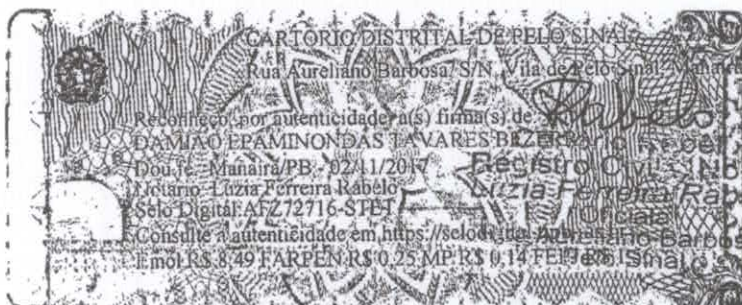 CARTÓRIO DISTRITAL DE PELO SINAL
Rua Aureliano Barbosa, S/N, Vila de Pelo Sinal
Reconheço, por autenticidade, a(s) firma(s) de:
DAMIAO EPAMINONDAS TAVARES BEZERRA
Dou fé. Manaíra/PB - 02/11/2017
Notário: Luzia Ferreira Rabelo
Selo Digital: AFZ72716-STET
Consulte a autenticidade em https://selodigital
Emol R$ 8,49 FARPEN R$ 0,25 MP R$ 0,14
Rabelo
Registro Civil
Luzia Ferreira Rab
Oficiala
Aureliano Barbos
Pelo Sinal